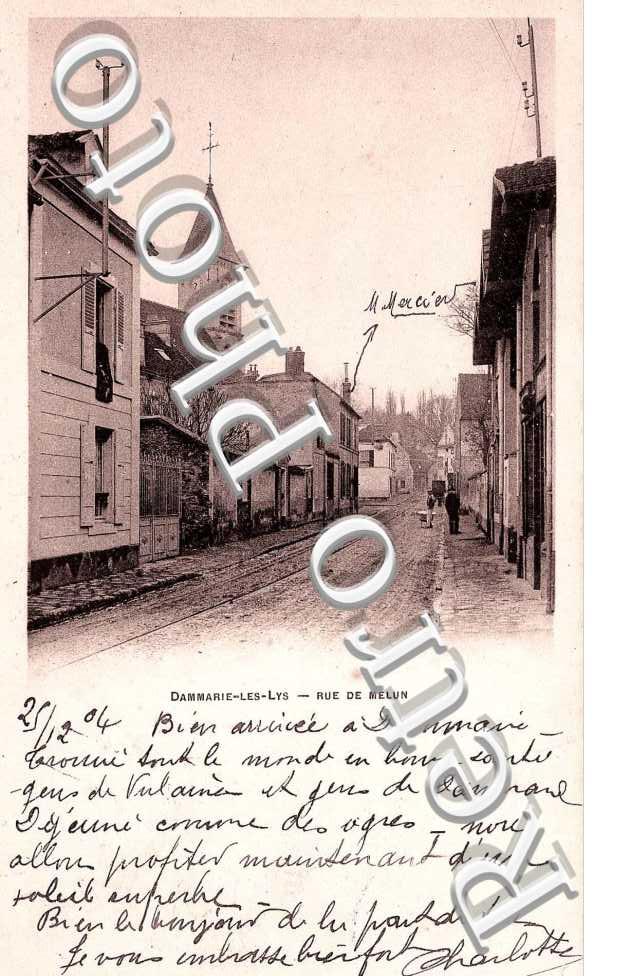 Photo Photo Retro
M Mercier
DAMMARIE-LES-LYS — RUE DE MELUN
25/12 04 Bien arrivée à
trouvé tout le monde en bonne
gens de et gens de
Déjeuné comme des ogres — nous
allons profiter maintenant d'un
soleil superbe
Bien le bonjour de la part de
Je vous embrasse bien fort Charlotte